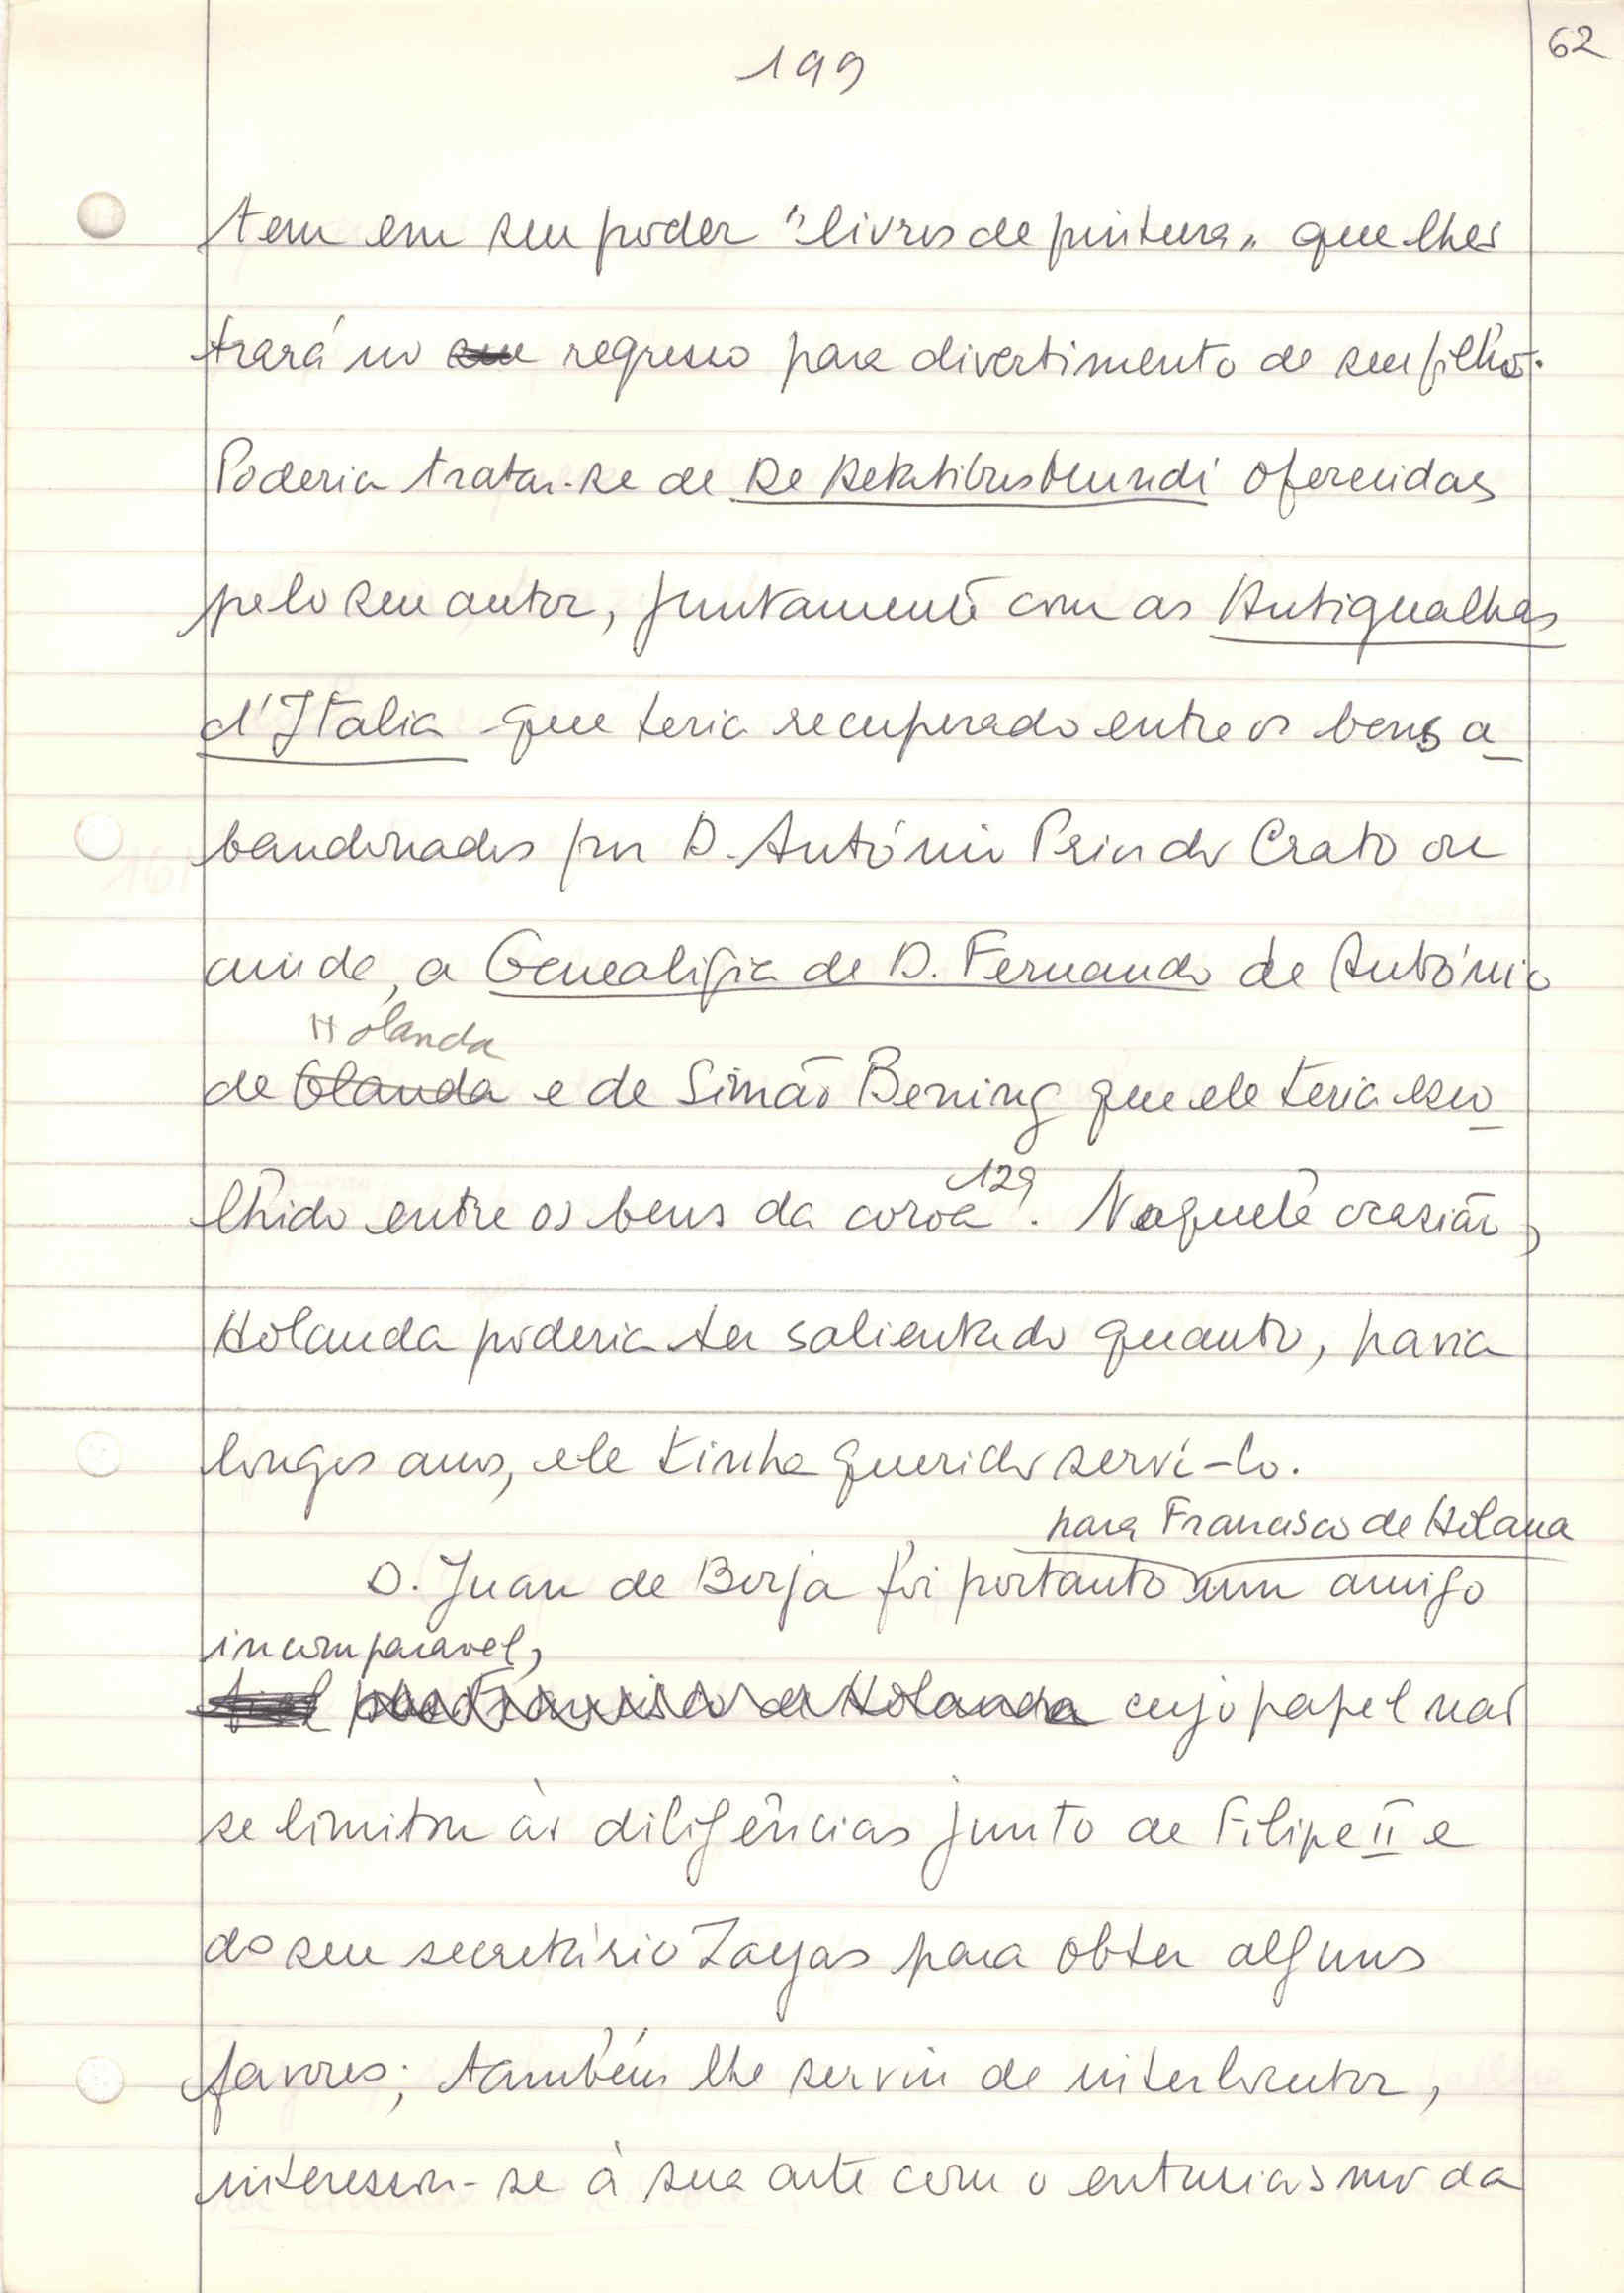 62
199
tem em seu poder "livros de pintura" que lhes
trará no seu regresso para divertimento de seu filho.
Poderia tratar-se de De Aetatibus Mundi oferecidas
pelo seu autor, juntamente com as Antigualhas
d'Italia que teria recuperado entre os bens a
bandonados por D. António Prior do Crato ou
ainda, a Genealogia de D. Fernando de António
Holanda
de Olanda e de Simão Bening que ele teria esco
lhido entre os bens da coroa 129. Naquela ocasião,
Holanda poderia ter salientado quanto, havia
longos anos, ele tinha querido servi-lo.
para Francisco de Holana
D. Juan de Borja foi portanto um amigo
incomparavel,
fiel para Francisco de Holanda cujo papel não
se limitou às diligências junto de Filipe II e
do seu secretário Zayas para obter alguns
favores; também lhe serviu de interlocutor,
interessou-se à sua arte com o entusiasmo da